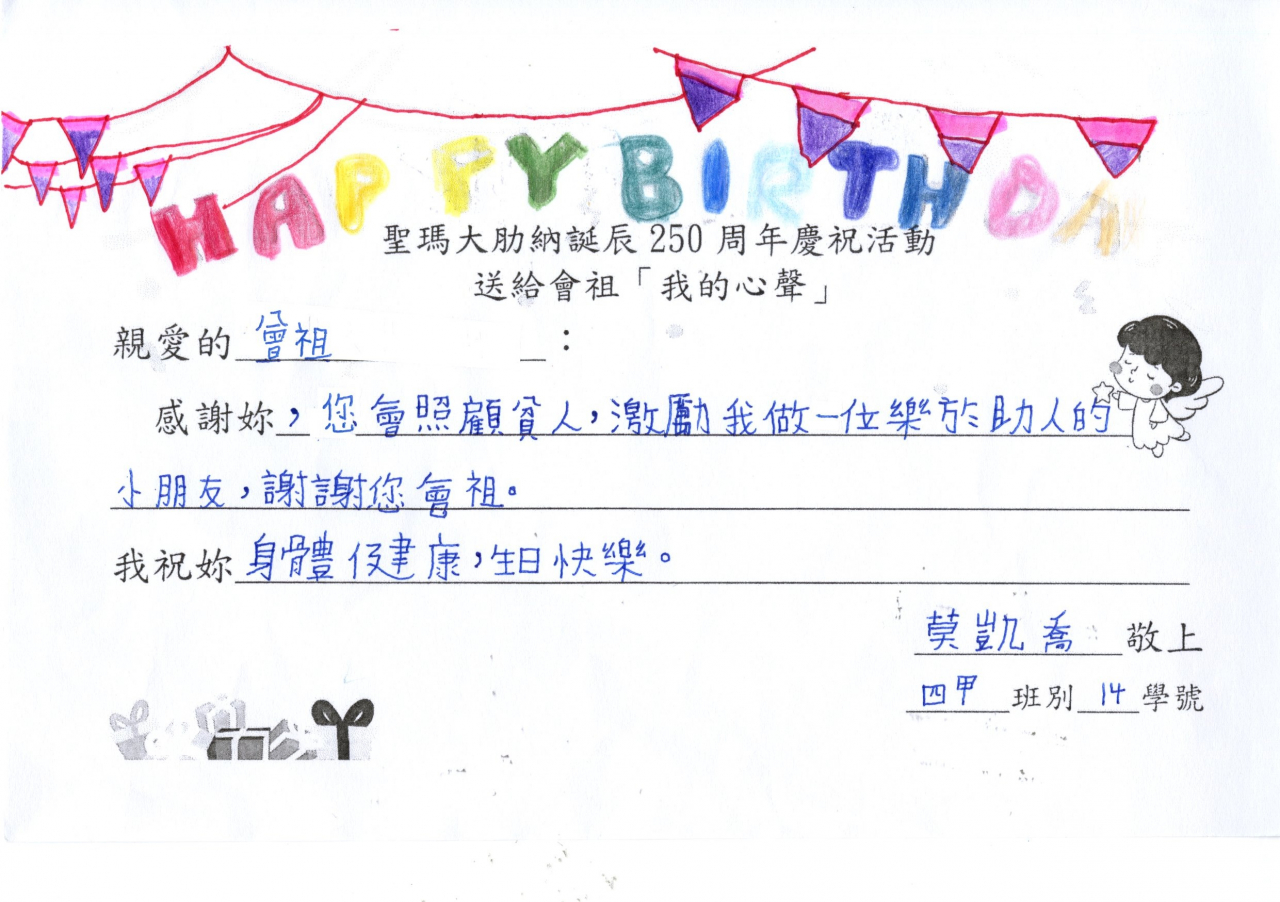 HAPPY BIRTHDA
聖瑪大肋納誕辰 250 周年慶祝活動
送給會祖「我的心聲」
親愛的 會祖 :
感謝妳，您會照顧貧人，激勵我做一位樂於助人的
小朋友，謝謝您會祖。
我祝妳身體健康，生日快樂。
莫凱喬 敬上
四甲 班別 14 學號